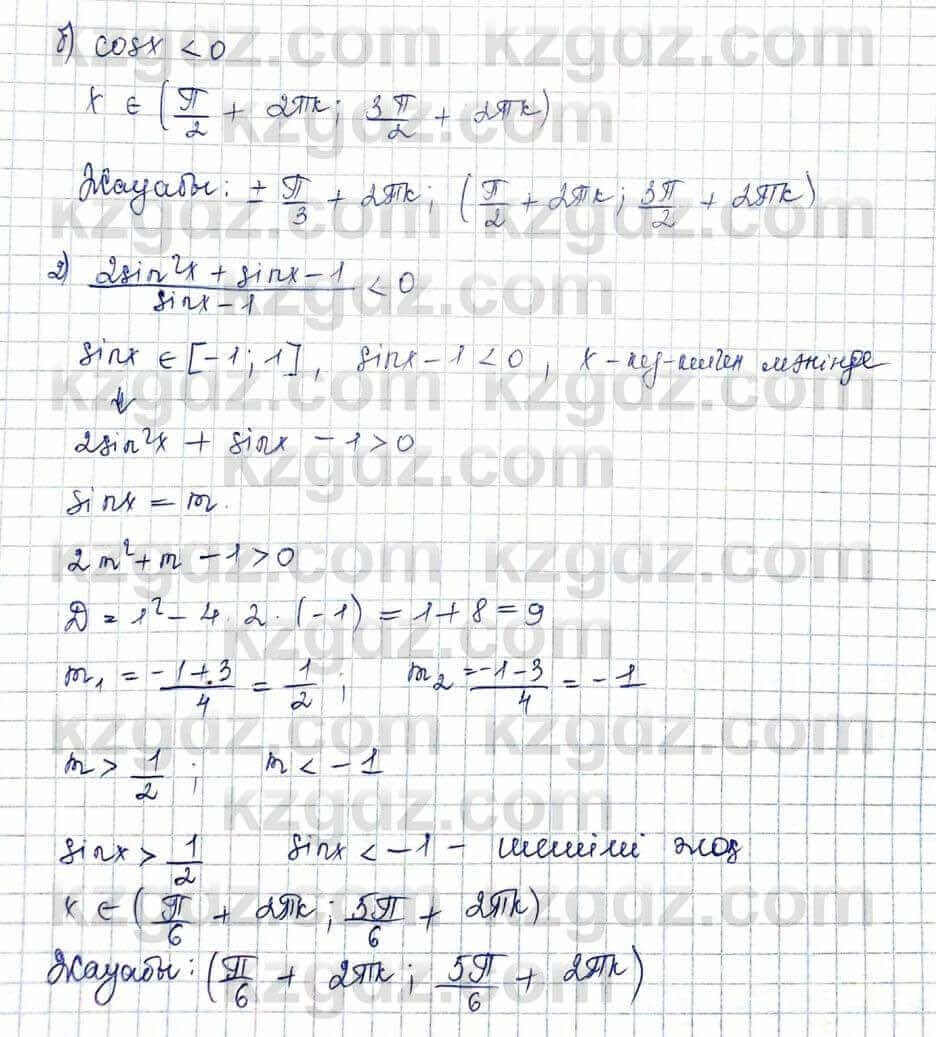 б) cosx < 0
x ∈ (π/2 + 2πk; 3π/2 + 2πk)
Жауабы: ± π/3 + 2πk; (π/2 + 2πk; 3π/2 + 2πk)
2) (2sin²x + sinx – 1)/(sinx – 1) < 0
sinx ∈ [-1; 1], sinx – 1 < 0, x - кез-келген мәнінде
⇓
2sin²x + sinx – 1 > 0
sinx = m.
2m² + m – 1 > 0
D = 1² – 4 · 2 · (-1) = 1 + 8 = 9
m₁ = (-1+3)/4 = 1/2; m₂ = (-1-3)/4 = -1
m > 1/2; m < -1
sinx > 1/2 sinx < -1 – шешімі жоқ
x ∈ (π/6 + 2πk; 5π/6 + 2πk)
Жауабы: (π/6 + 2πk; 5π/6 + 2πk)
kzgdz.com